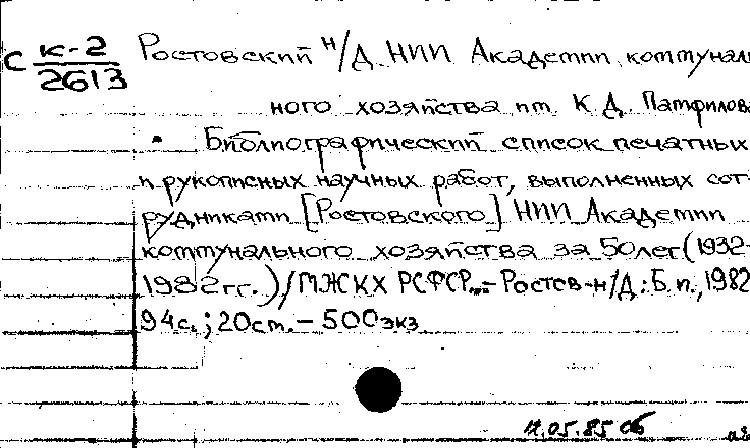 С К-2 Ростовский н/Д НИИ Академии коммуналь
2613
ного хозяйства им. К.Д. Памфилова
Библиографический список печатных
и рукописных научных работ, выполненных сот-
рудниками [Ростовского] НИИ Академии
коммунального хозяйства за 50 лет (1932-
1982 гг.) / МЖКХ РСФСР.- Ростов-н/Д.: Б.и., 1982
94 с.; 20 см. - 500 экз
05.85